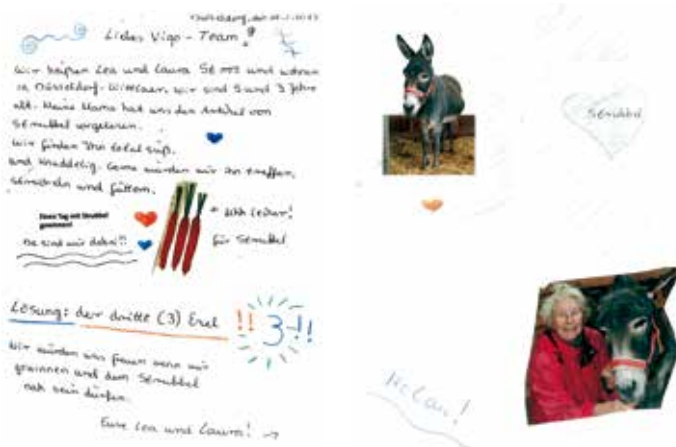 Düsseldorf, den
Liebes Vigo-Team!
Wir heißen Lea und Laura und wohnen
in Düsseldorf-Wittlaer. Wir sind 5 und 3 Jahre
alt. Meine Mama hat uns den Artikel von
Strubbel vorgelesen.
Wir finden Ihn total süß
und knuddelig. Gerne würden wir ihn treffen,
streicheln und füttern.
Einen Tag mit Strubbel
gewinnen!
Da sind wir dabei!!
Lecker!
für Strubbel
Lösung: der dritte (3) Esel
!! 3 !!
Wir würden uns freuen wenn wir
gewinnen und dem Strubbel
nah sein dürfen.
Eure Lea und Laura! →
Strubbel
Helau!